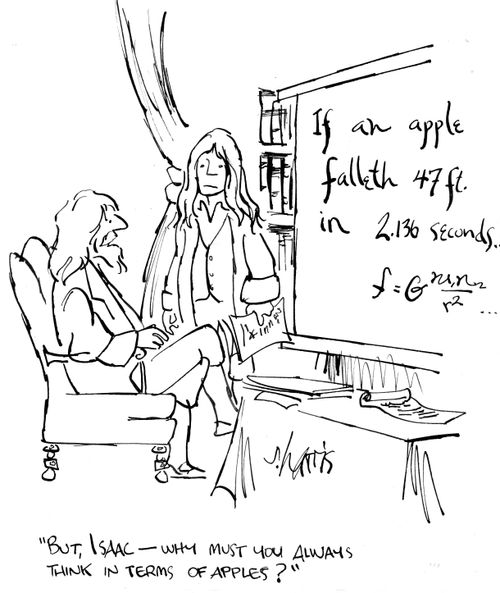 If an apple
falleth 47 ft.
in 2.136 seconds..
f = G m₁m₂/r² ...
S. Harris
"BUT, ISAAC — WHY MUST YOU ALWAYS
THINK IN TERMS OF APPLES?"